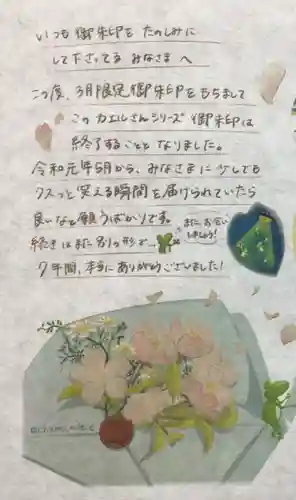 いつも御朱印をたのしみに
して下さってる みなさまへ
この度、3月限定御朱印をもちまして
このカエルさんシリーズ御朱印は
終了することと なりました。
令和元年5月から、みなさまに少しでも
クスっと笑える瞬間を届けられていたら
良いなと願うばかりです。
続きはまた別の形で…
またお会い
しましょう!
7年間、本当にありがとうございました!